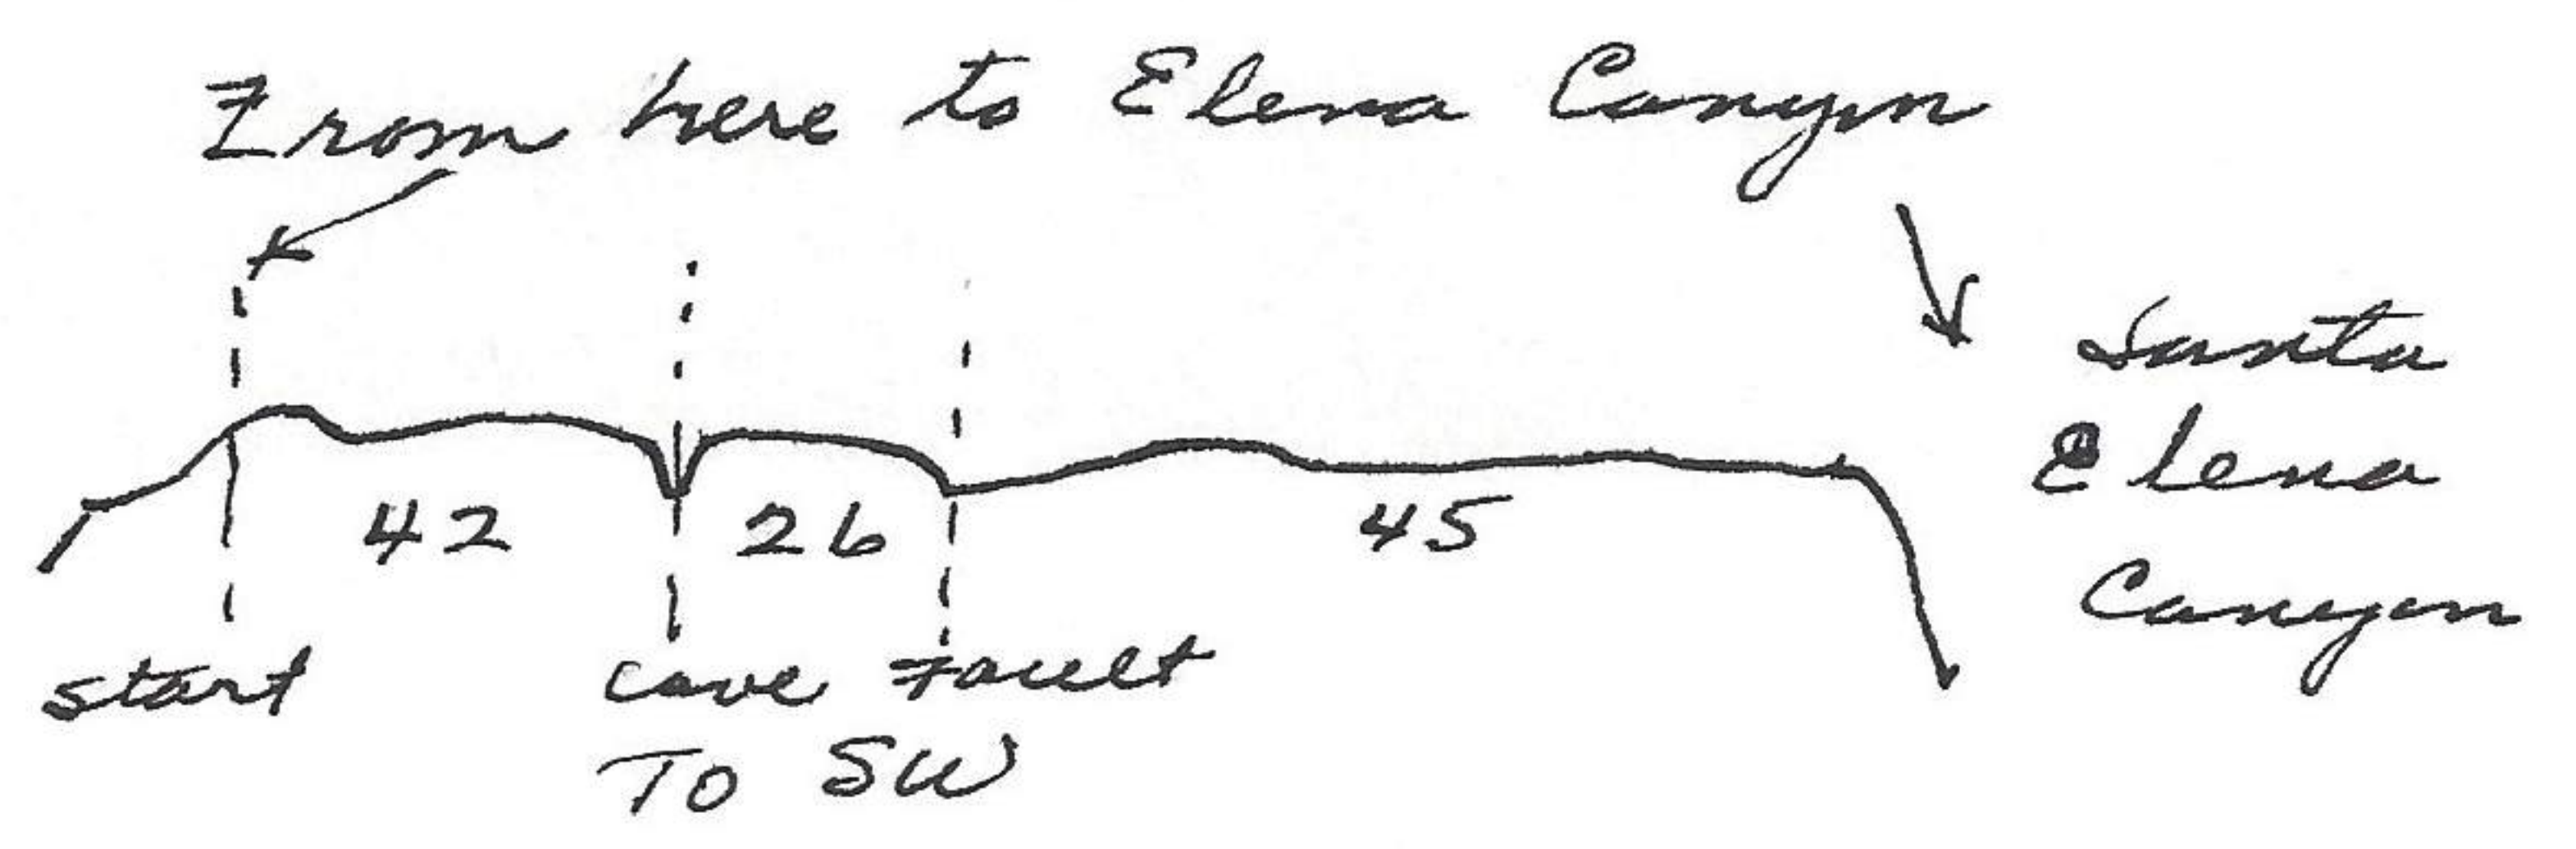 From here to Elena Canyon
Santa
Elena
Canyon
42 26 45
start cave fault
TO SW